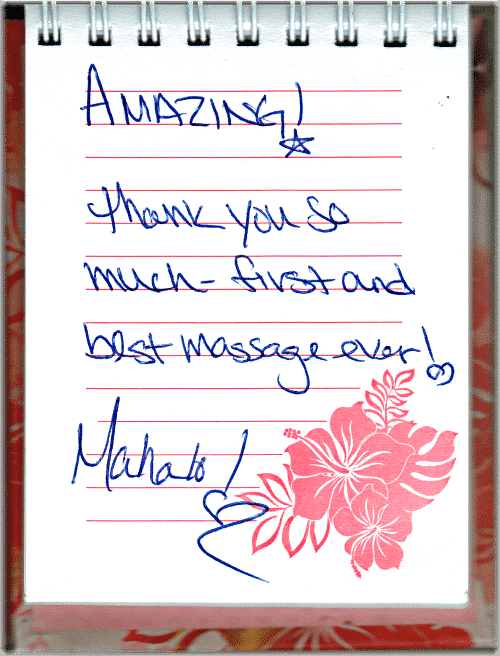 AMAZING!
thank you so
much - first and
best massage ever!
Mahalo!